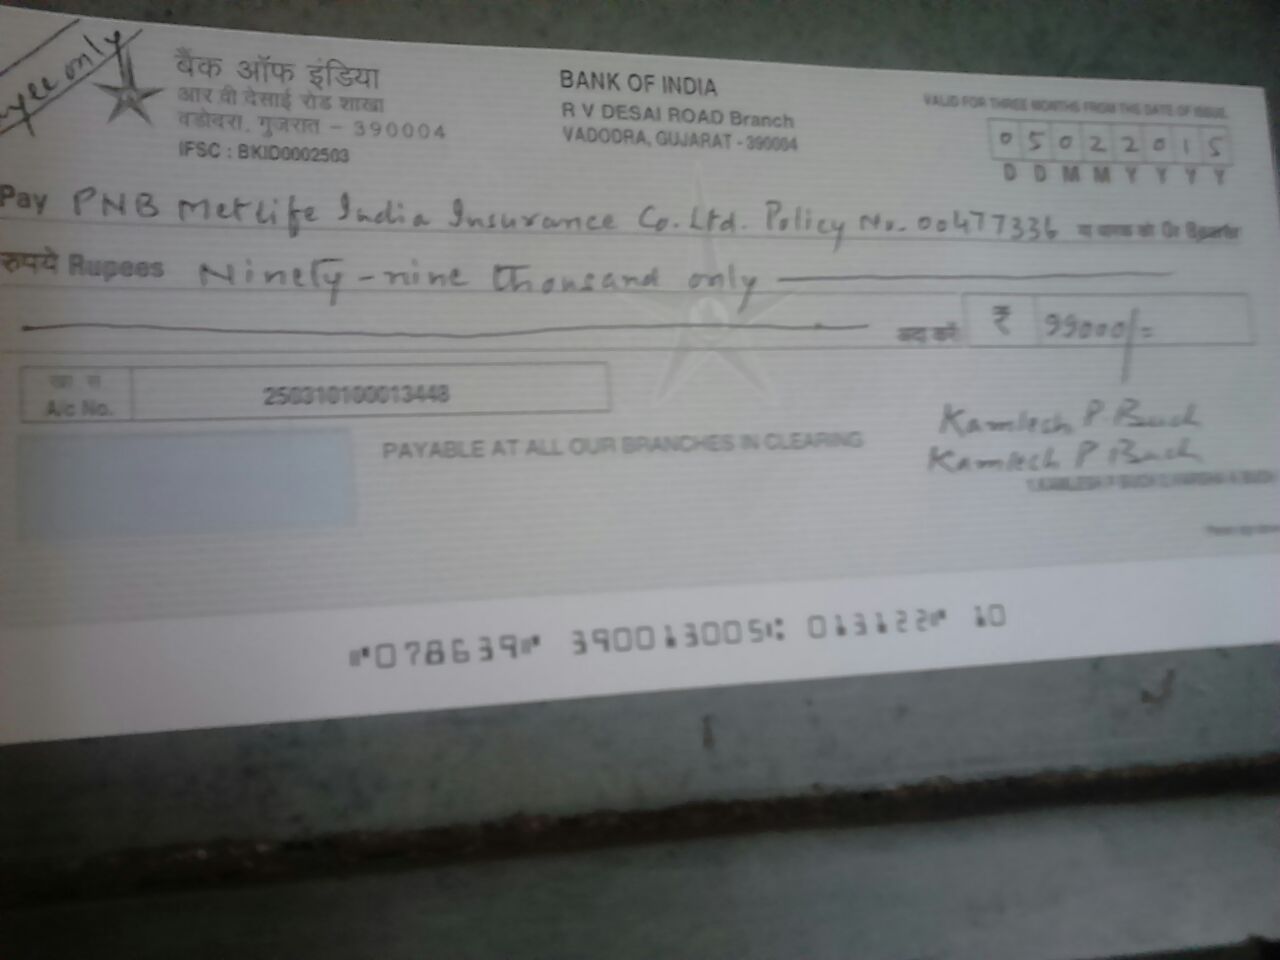 only
बैंक ऑफ इंडिया
आर वी देसाई रोड शाखा
वडोदरा, गुजरात - 390004
IFSC : BKID0002503
BANK OF INDIA
R V DESAI ROAD Branch
VADODRA, GUJARAT - 390004
VALID FOR THREE MONTHS FROM THE DATE OF ISSUE
0 5 0 2 2 0 1 5
D D M M Y Y Y Y
Pay PNB Metlife India Insurance Co. Ltd. Policy No. 00477336 या धारक को Or Bearer
रुपये Rupees Ninety-nine thousand only
अदा करें ₹ 99000/=
खा सं
A/c No. 250310100013448
PAYABLE AT ALL OUR BRANCHES IN CLEARING
Kamlesh P. Buch
Kamlesh P Buch
078639 390013005 013122 10